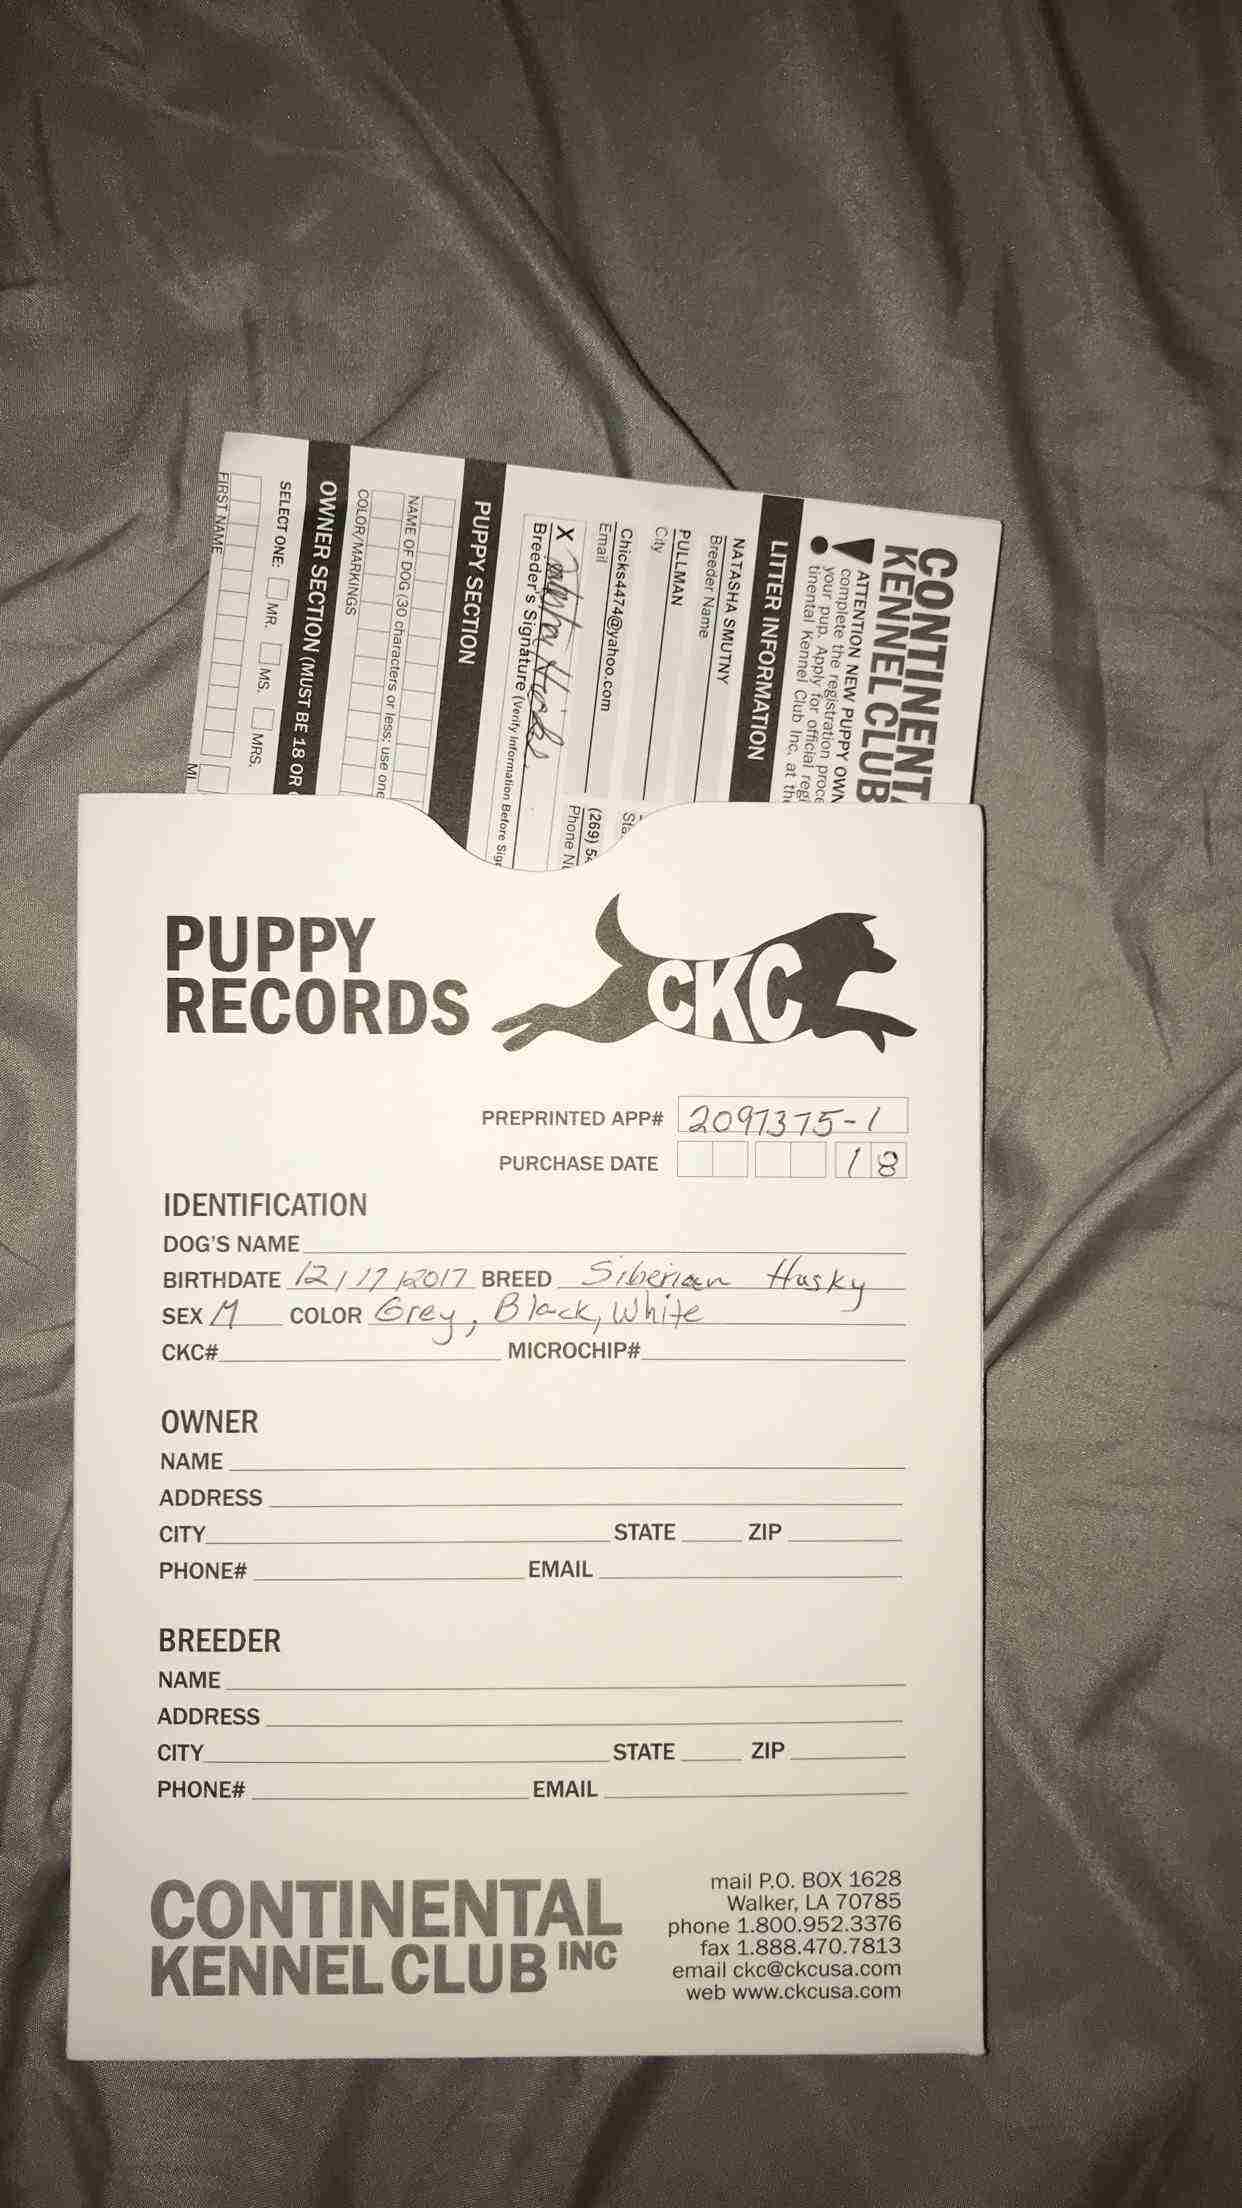 CONTINENT
KENNEL CLUB
ATTENTION NEW PUPPY OWN
complete the registration proce
your pup. Apply for official regi
tinental Kennel Club Inc. at the
LITTER INFORMATION
NATASHA SMUTNY
Breeder Name
PULLMAN
City
Chicks4474@yahoo.com
Email
(269) 54
Phone N
X
Breeder's Signature (Verify Information Before Sig
PUPPY SECTION
NAME OF DOG (30 characters or less; use one
COLOR/MARKINGS
OWNER SECTION (MUST BE 18 OR
SELECT ONE: MR. MS. MRS.
FIRST NAME MI
PUPPY
RECORDS
CKC
PREPRINTED APP# 2097375-1
PURCHASE DATE 18
IDENTIFICATION
DOG'S NAME
BIRTHDATE 12/17/2017 BREED Siberian Husky
SEX M COLOR Grey, Black, White
CKC# MICROCHIP#
OWNER
NAME
ADDRESS
CITY STATE ZIP
PHONE# EMAIL
BREEDER
NAME
ADDRESS
CITY STATE ZIP
PHONE# EMAIL
CONTINENTAL
KENNEL CLUB INC
mail P.O. BOX 1628
Walker, LA 70785
phone 1.800.952.3376
fax 1.888.470.7813
email ckc@ckcusa.com
web www.ckcusa.com